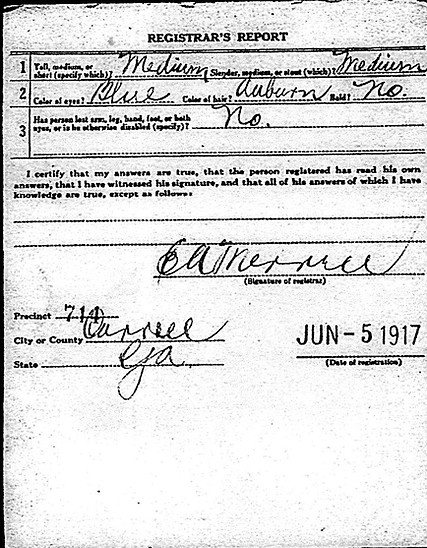 REGISTRAR'S REPORT
1 Tall, medium, or short (specify which)? Medium Slender, medium, or stout (which)? Medium
2 Color of eyes? Blue Color of hair? Auburn Bald? No.
3 Has person lost arm, leg, hand, foot, or both eyes, or is he otherwise disabled (specify)? No.
I certify that my answers are true, that the person registered has read his own
answers, that I have witnessed his signature, and that all of his answers of which I have
knowledge are true, except as follows:
(Signature of registrar)
Precinct 714
City or County Carroll
State Ga
JUN - 5 1917
(Date of registration)